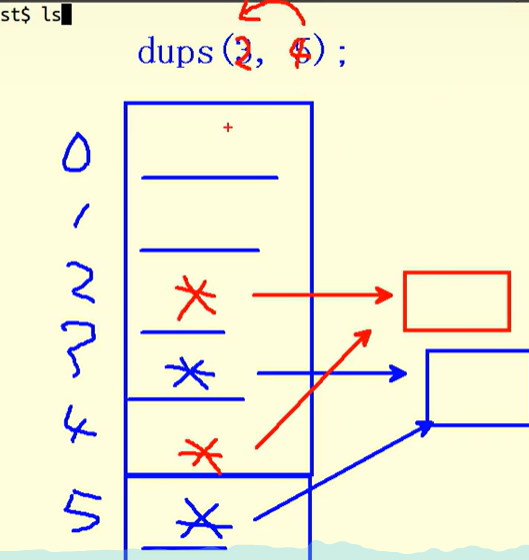 st$ ls
dups(2, 4);
0
1
2
3
4
5